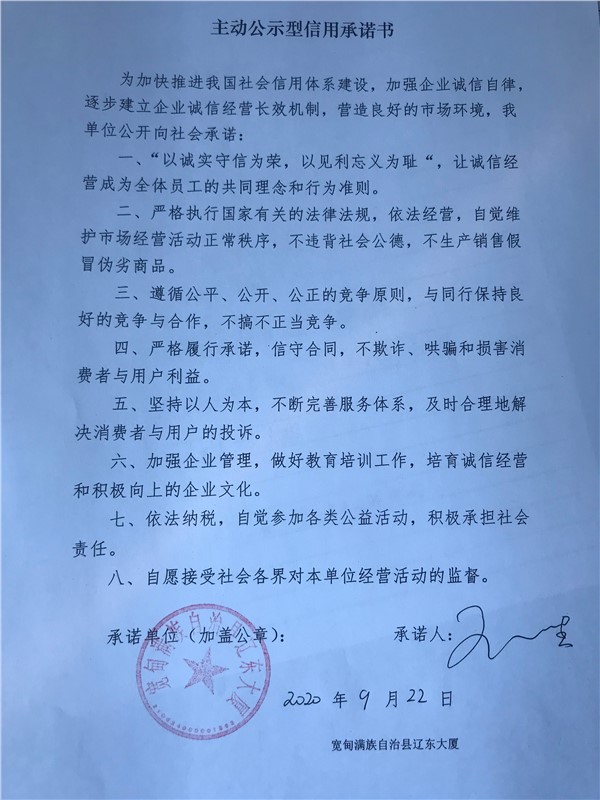 主动公示型信用承诺书
为加快推进我国社会信用体系建设，加强企业诚信自律，
逐步建立企业诚信经营长效机制，营造良好的市场环境，我
单位公开向社会承诺：
一、“以诚实守信为荣，以见利忘义为耻“，让诚信经
营成为全体员工的共同理念和行为准则。
二、严格执行国家有关的法律法规，依法经营，自觉维
护市场经营活动正常秩序，不违背社会公德，不生产销售假
冒伪劣商品。
三、遵循公平、公开、公正的竞争原则，与同行保持良
好的竞争与合作，不搞不正当竞争。
四、严格履行承诺，信守合同，不欺诈、哄骗和损害消
费者与用户利益。
五、坚持以人为本，不断完善服务体系，及时合理地解
决消费者与用户的投诉。
六、加强企业管理，做好教育培训工作，培育诚信经营
和积极向上的企业文化。
七、依法纳税，自觉参加各类公益活动，积极承担社会
责任。
八、自愿接受社会各界对本单位经营活动的监督。
承诺单位（加盖公章）： 承诺人：
宽甸满族自治县辽东大厦
2020 年 9 月 22 日
宽甸满族自治县辽东大厦